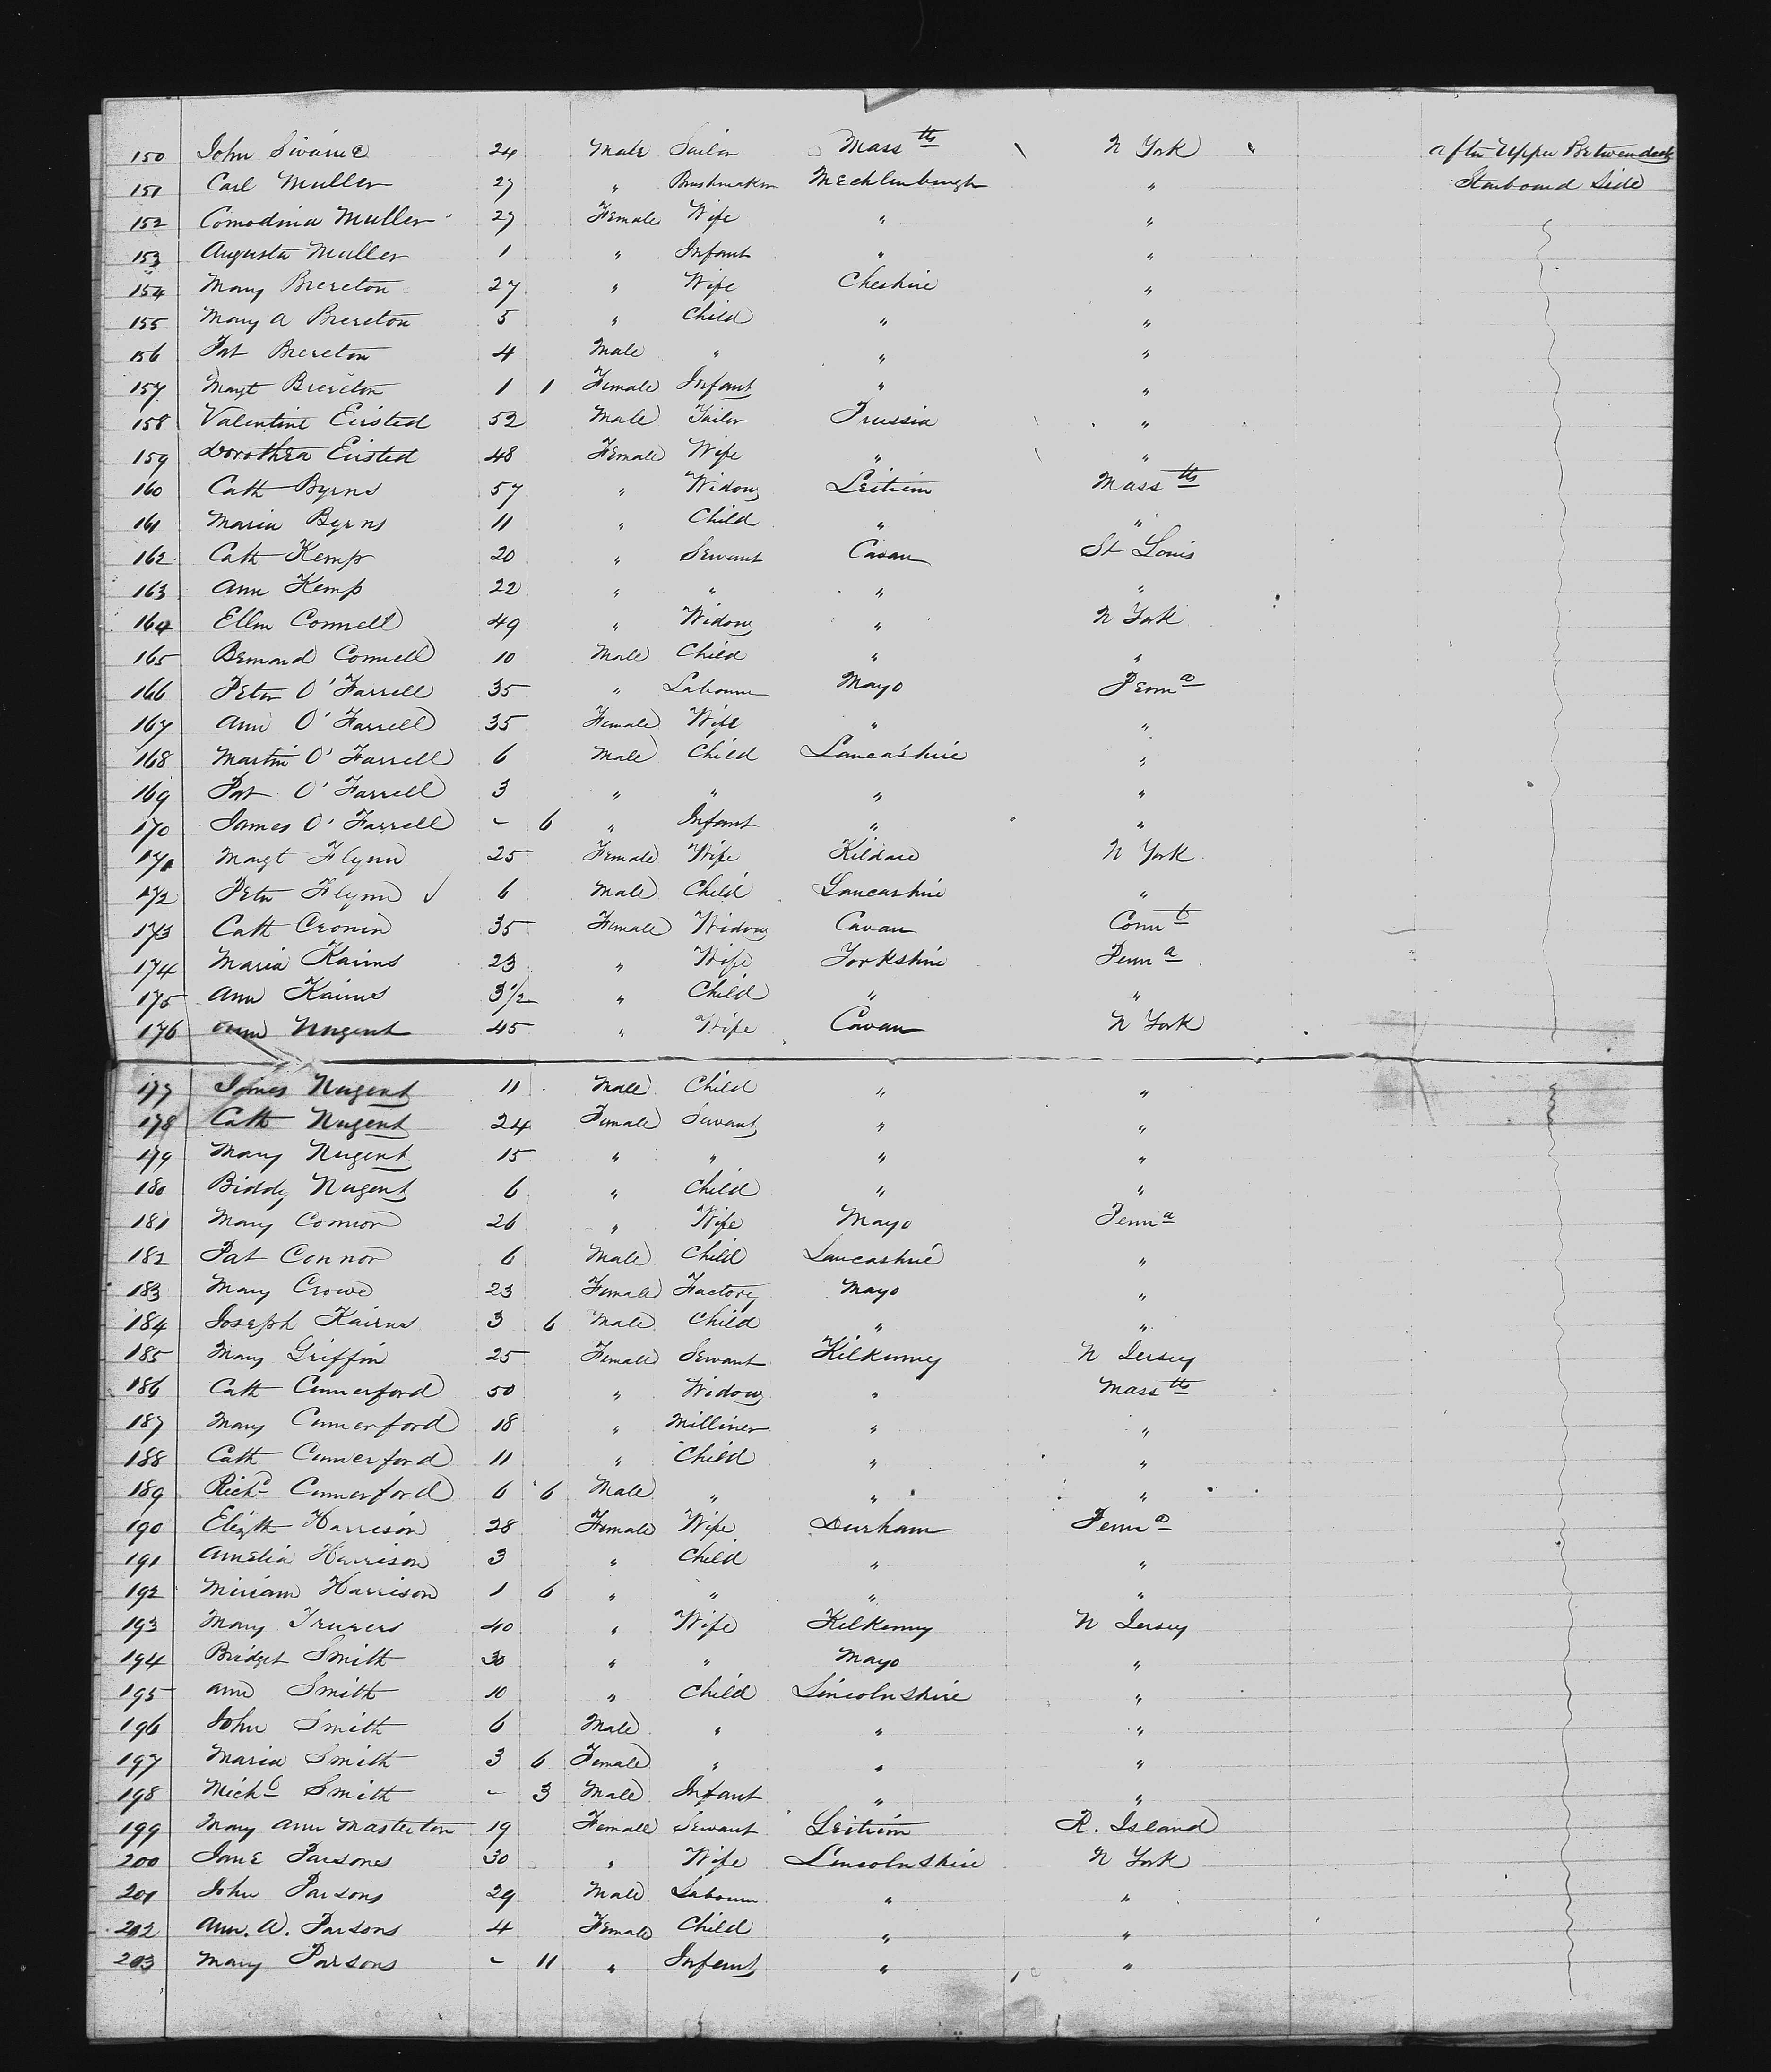 150 John Swaine 24 Male Sailor Massths N York after Upper Betweendeck
151 Carl Muller 27 " Brushmaker Mecklinburgh " Starboard Side
152 Comodina Muller 27 Female Wife " "
153 Augusta Muller 1 " Infant " "
154 Mary Brereton 27 " Wife Cheshire "
155 Mary A Brereton 5 " Child " "
156 Pat Brereton 4 Male " " "
157 Margt Brereton 1 1 Female Infant " "
158 Valentine Eirsted 52 Male Tailor Prussia "
159 Dorothea Eirsted 48 Female Wife " "
160 Cath Byrns 57 " Widow Leitrim Massths
161 Maria Byrns 11 " Child " "
162 Cath Kemp 20 " Servant Cavan St Louis
163 Ann Kemp 22 " " " "
164 Ellen Connell 49 " Widow " N York
165 Bernard Connell 10 Male Child " "
166 Peter O'Farrell 35 " Labourer Mayo Penna
167 Ann O'Farrell 35 Female Wife " "
168 Martin O'Farrell 6 Male Child Lancashire "
169 Pat O'Farrell 3 " " " "
170 James O'Farrell - 6 " Infant " "
171 Margt Flynn 25 Female Wife Kildare N York
172 Peter Flynn 6 Male Child Lancashire "
173 Cath Cronin 35 Female Widow Cavan Connt
174 Maria Kairns 23 " Wife Yorkshire Penna
175 Ann Kairns 3 1/2 " Child " "
176 Ann Nugent 45 " Wife Cavan N York
177 James Nugent 11 Male Child " "
178 Cath Nugent 24 Female Servant " "
179 Mary Nugent 15 " " " "
180 Biddy Nugent 6 " Child " "
181 Mary Connor 26 " Wife Mayo Penna
182 Pat Connor 6 Male Child Lancashire "
183 Mary Crowe 23 Female Factory Mayo "
184 Joseph Kairns 3 6 Male Child " "
185 Mary Griffin 25 Female Servant Kilkenny N Jersey
186 Cath Cumerford 50 " Widow " Massths
187 Mary Cumerford 18 " Milliner " "
188 Cath Cumerford 11 " Child " "
189 Richd Cumerford 6 6 Male " " "
190 Elizth Harrison 28 Female Wife Durham Penna
191 Amelia Harrison 3 " Child " "
192 Miriam Harrison 1 6 " " " "
193 Mary Travers 40 " Wife Kilkenny N Jersey
194 Bridget Smith 30 " " Mayo "
195 Ann Smith 10 " Child Lincolnshire "
196 John Smith 6 Male " " "
197 Maria Smith 3 6 Female " " "
198 Michl Smith - 3 Male Infant " "
199 Mary Ann Masterton 19 Female Servant Leitrim R. Island
200 Jane Parsons 30 " Wife Lincolnshire N York
201 John Parsons 29 Male Labourer " "
202 Ann. W. Parsons 4 Female Child " "
203 Mary Parsons - 11 " Infant " "